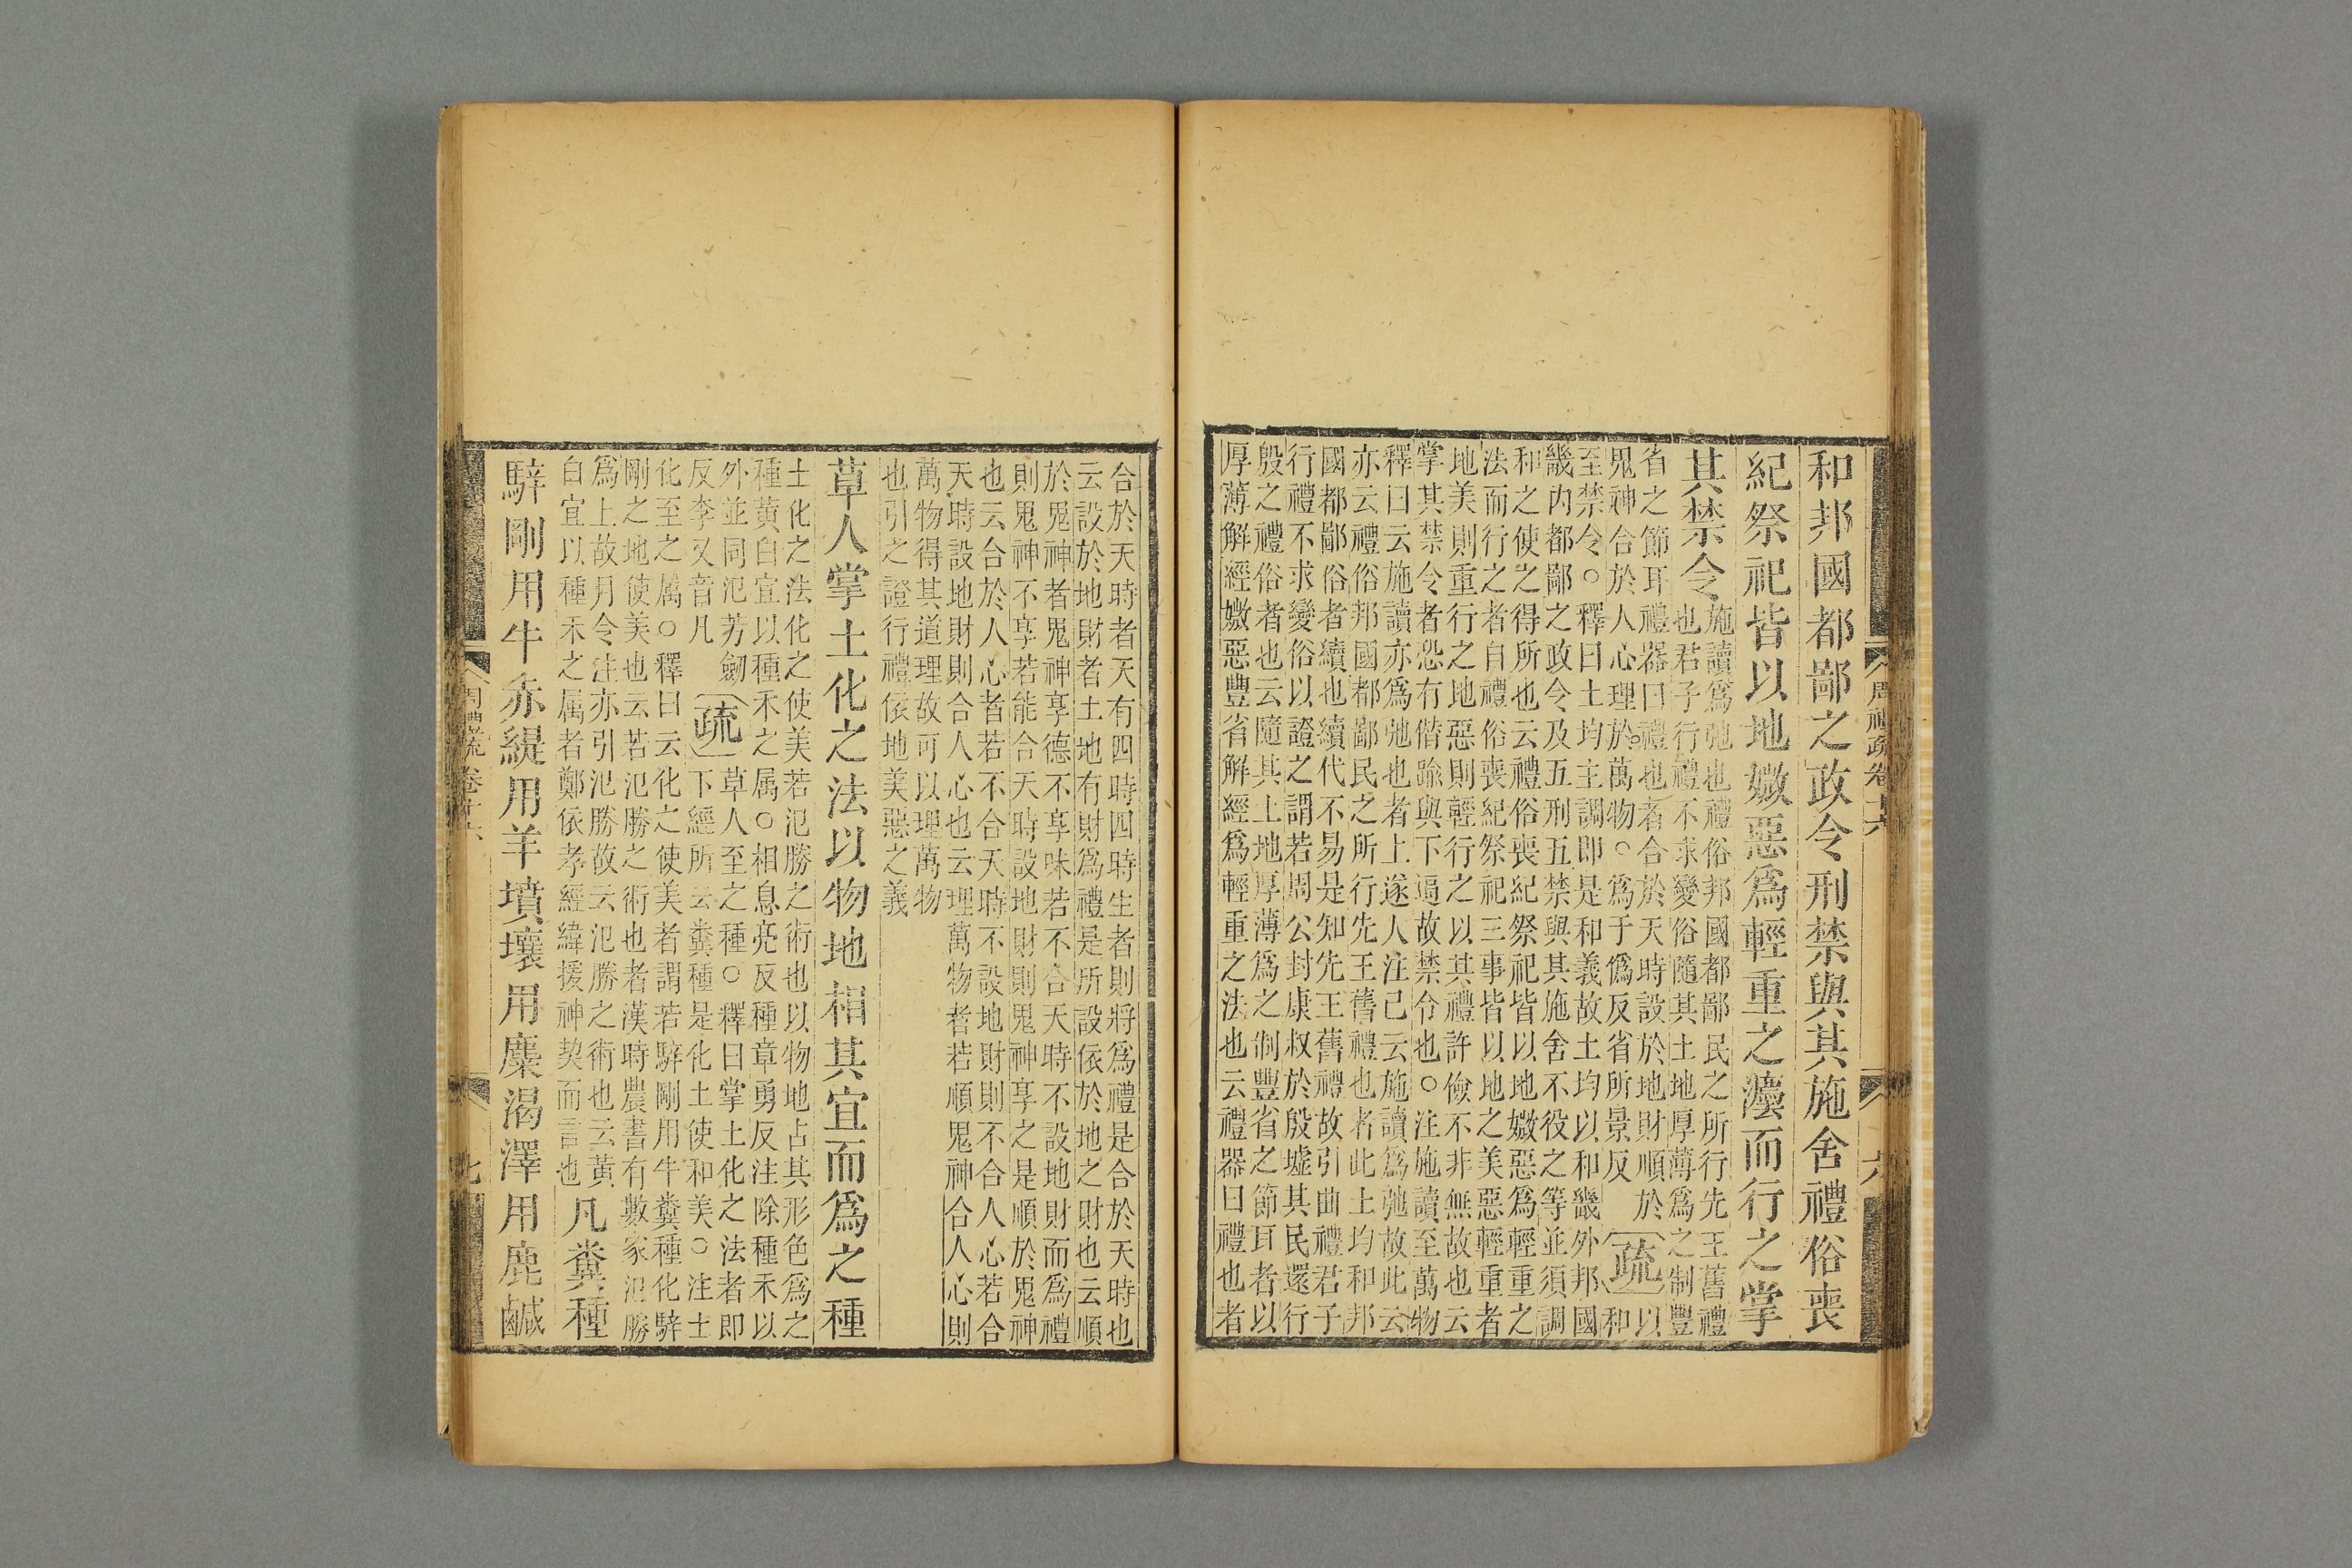 周禮疏卷十六
六
和邦國都鄙之政令刑禁與其施舍禮俗喪
紀祭祀皆以地媺惡爲輕重之灋而行之掌
其禁令
施讀爲弛也禮俗邦國都鄙民之所行先王舊禮
也君子行禮不求變俗隨其土地厚薄爲之制豐
省之節耳禮器曰禮也者合於天時設於地財順於
鬼神合於人心理於萬物○爲于僞反省所景反
疏
以
和
至禁令○釋曰土均主調即是和義故土均以和畿外邦國
畿內都鄙之政令及五刑五禁與其施舍不役之等並須調
和之使之得所也云禮俗喪紀祭祀皆以地媺惡爲輕重之
法而行之者自禮俗喪紀祭祀三事皆以地之美惡輕重者
地美則重行之地惡則輕行之以其禮許儉不非無故也云
掌其禁令者恐有僭踰與下逼故禁令也○注施讀至萬物
釋曰云施讀亦爲弛也者上遂人注已云施讀爲弛故此云
亦云禮俗邦國都鄙民之所行先王舊禮也者此土均和邦
國都鄙俗者續也續代不易是知先王舊禮故引曲禮君子
行禮不求變俗以證之謂若周公封康叔於殷墟其民還行
殷之禮俗者也云隨其土地厚薄爲之制豐省之節耳者以
厚薄解經媺惡豐省解經爲輕重之法也云禮器曰禮也者
合於天時者天有四時四時生者則將爲禮是合於天時也
云設於地財者土地有財爲禮是所設依於地之財也云順
於鬼神者鬼神享德不享味若不合天時不設地財而爲禮
則鬼神不享若能合天時設地財則鬼神享之是順於鬼神
也云合於人心者若不合天時不設地財則不合人心若合
天時設地財則合人心也云理萬物者若順鬼神合人心則
萬物得其道理故可以理萬物
也引之證行禮依地美惡之義
草人掌土化之法以物地相其宜而爲之種
土化之法化之使美若氾勝之術也以物地占其形色爲之
種黃白宜以種禾之属○相息亮反種章勇反注除種禾以
外並同氾芳劒
反李又音凡
疏
草人至之種○釋曰掌土化之法者即
下經所云糞種是化土使和美○注土
化至之属○釋曰云化之使美者謂若騂剛用牛糞種化騂
剛之地使美也云若氾勝之術也者漢時農書有數家氾勝
爲上故月令注亦引氾勝故云氾勝之術也云黃
白宜以種禾之属者鄭依孝經緯援神契而言也
凡糞種
騂剛用牛赤緹用羊墳壤用麋渴澤用鹿鹹
周禮疏卷十六
七